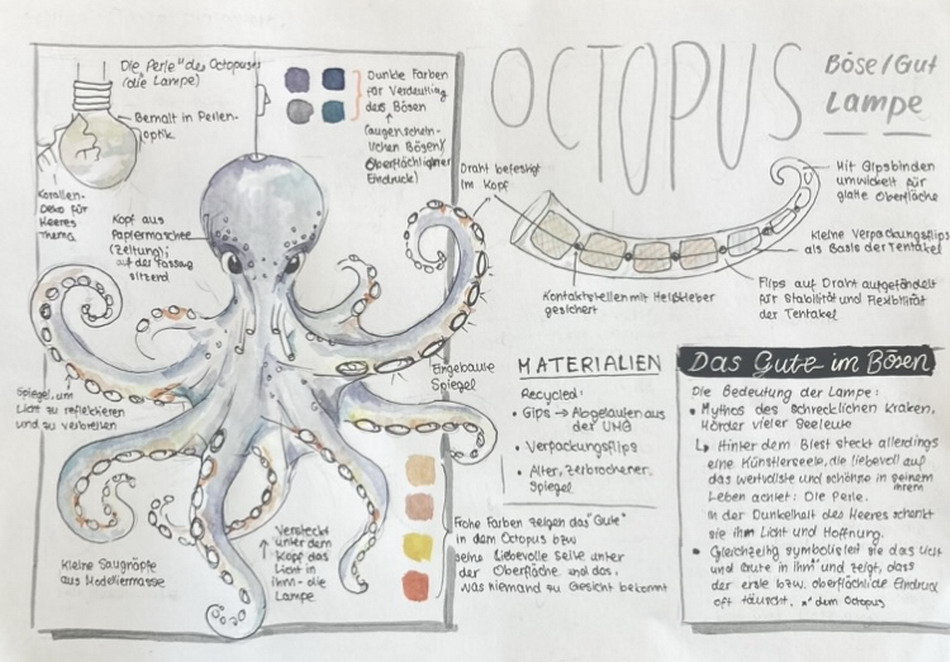 Die "Perle" des Octopuses
(die Lampe)
Bemalt in Perlen-
optik
Korallen-
Deko für
Meeres
Thema
Kopf aus
Papiermaschee
(Zeitung);
auf der Fassung
sitzend
Dunkle Farben
für Verdeutlung
des Bösen
(augenschein-
lichen Bösen)/
Oberflächlicher
Eindruck)
OCTOPUS
Böse/Gut
Lampe
Draht befestigt
im Kopf
Mit Gipsbinden
umwickelt für
glatte Oberfläche
Kleine Verpackungsflips
als Basis der Tentakel
Flips auf Draht aufgefädelt
für Stabilität und Flexibilität
der Tentakel
Kontaktstellen mit Heißkleber
gesichert
Eingebaute
Spiegel
Spiegel, um
Licht zu reflektieren
und zu verbreiten
Kleine Saugnäpfe
aus Modelliermasse
Versteckt
unter dem
Kopf das
Licht in
ihm - die
Lampe
MATERIALIEN
Recycled:
• Gips → Abgelaufen aus
der UHG
• Verpackungsflips
• Alter, zerbrochener
Spiegel
Frohe Farben zeigen das "Gute"
in dem Octopus bzw
seine liebevolle Seite unter
der Oberfläche und das,
was niemand zu Gesicht bekommt
Das Gute im Bösen
Die Bedeutung der Lampe:
• Mythos des schrecklichen Kraken,
Mörder vieler Seeleute
↳ Hinter dem Biest steckt allerdings
eine Künstlerseele, die liebevoll auf
das wertvollste und schönste in seinem
ihrem
Leben achtet: Die Perle.
In der Dunkelheit des Meeres schenkt
sie ihm Licht und Hoffnung.
• Gleichzeitig symbolisiert sie das Licht
und Gute in ihm* und zeigt, dass
der erste bzw. oberflächliche Eindruck
oft täuscht. *dem Octopus